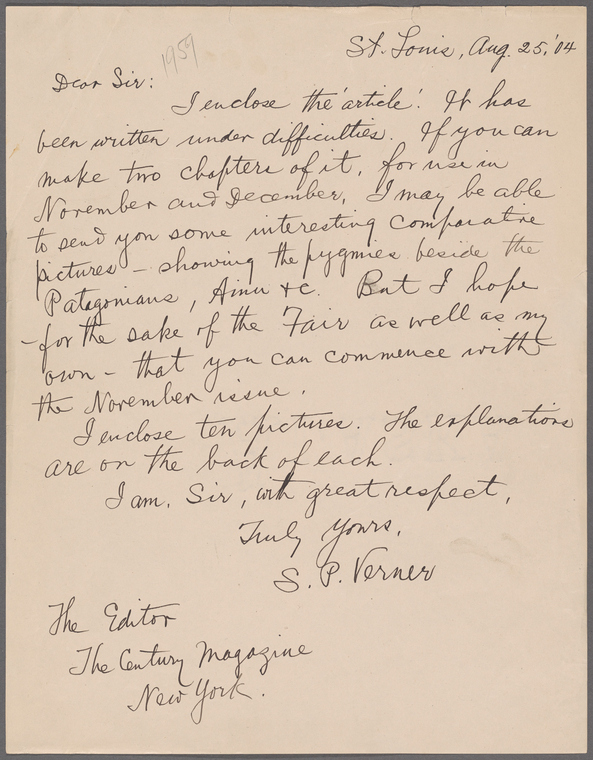 St. Louis, Aug. 25, '04
1959
Dear Sir:
I enclose the 'article'. It has
been written under difficulties. If you can
make two chapters of it, for use in
November and December, I may be able
to send you some interesting comparative
pictures - showing the pygmies beside the
Patagonians, Ainu &c. But I hope
- for the sake of the Fair as well as my
own - that you can commence with
the November issue.
I enclose ten pictures. The explanations
are on the back of each.
I am, Sir, with great respect,
Truly Yours,
S. P. Verner
The Editor
The Century Magazine
New York.